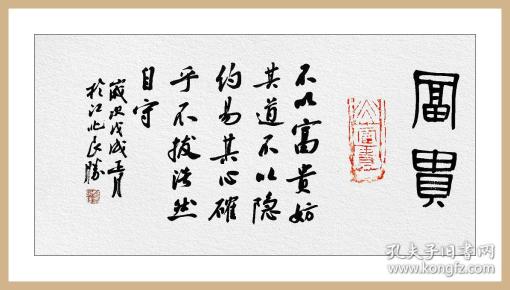 富貴
不以富貴妨
其道不以隐
约易其心確
乎不拔浩然
自守
歲次戊戌正月
於江北長勝
孔夫子旧书网
www.kongfz.com